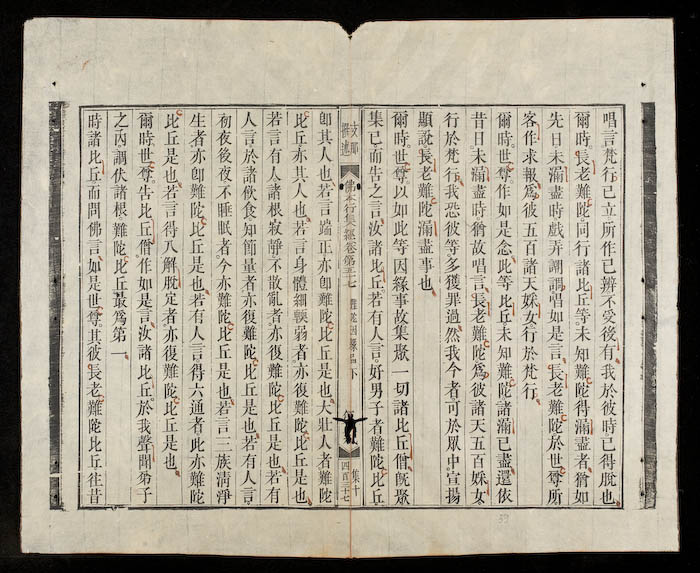 唱言梵行已立所作已辨不受後有我於彼時已得脫也
爾時長老難陀同行諸比丘等未知難陀得漏盡者猶如
先日未漏盡時戲弄調謿唱如是言長老難陀於世尊所
客作求報爲彼五百諸天婇女行於梵行
爾時世尊作如是念此等比丘未知難陀諸漏已盡還依
昔日未漏盡時猶故唱言長老難陀爲彼諸天五百婇女
行於梵行我恐彼等多獲罪過然我今者可於眾中宣揚
顯說長老難陀漏盡事也
爾時世尊以如此等因緣事故集聚一切諸比丘僧旣聚
集已而告之言汝諸比丘若有人言好男子者難陀比丘
支那
撰述
佛本行集經卷第五七
難陀因緣品下
四百三十七
集十
卽其人也若言端正亦卽難陀比丘是也大壯人者難陀
比丘亦其人也若言身體細輭弱者亦復難陀比丘是也
若言有人諸根寂靜不散亂者亦復難陀比丘是也若有
人言於諸飮食知節量者亦復難陀比丘是也若有人言
初夜後夜不睡眠者今亦難陀比丘是也若言三族淸淨
生者亦卽難陀比丘是也若有人言得六通者此亦難陀
比丘是也若言得八解脫定者亦復難陀比丘是也
爾時世尊告比丘僧作如是言汝諸比丘於我聲聞弟子
之內調伏諸根難陀比丘最爲第一
時諸比丘而問佛言如是世尊其彼長老難陀比丘往昔